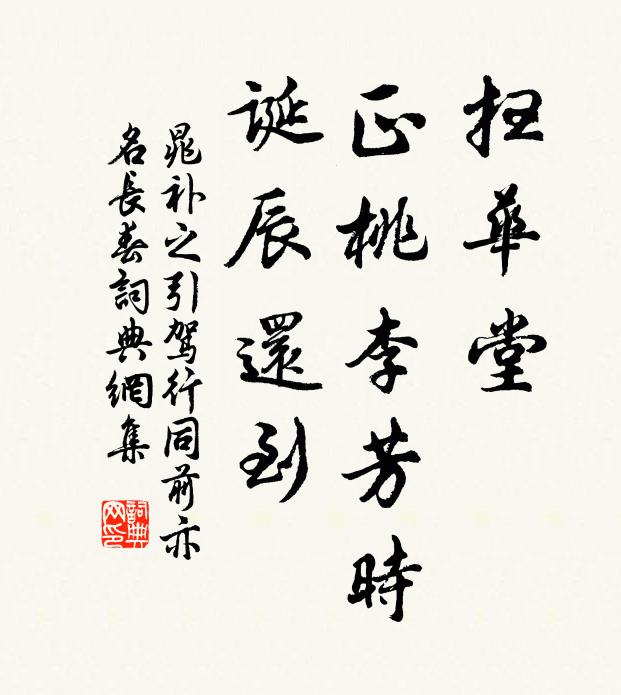 扫華堂
正桃李芳時
誕辰還到
晁补之引駕行同前亦
名長春詞典網集
詞典
网印